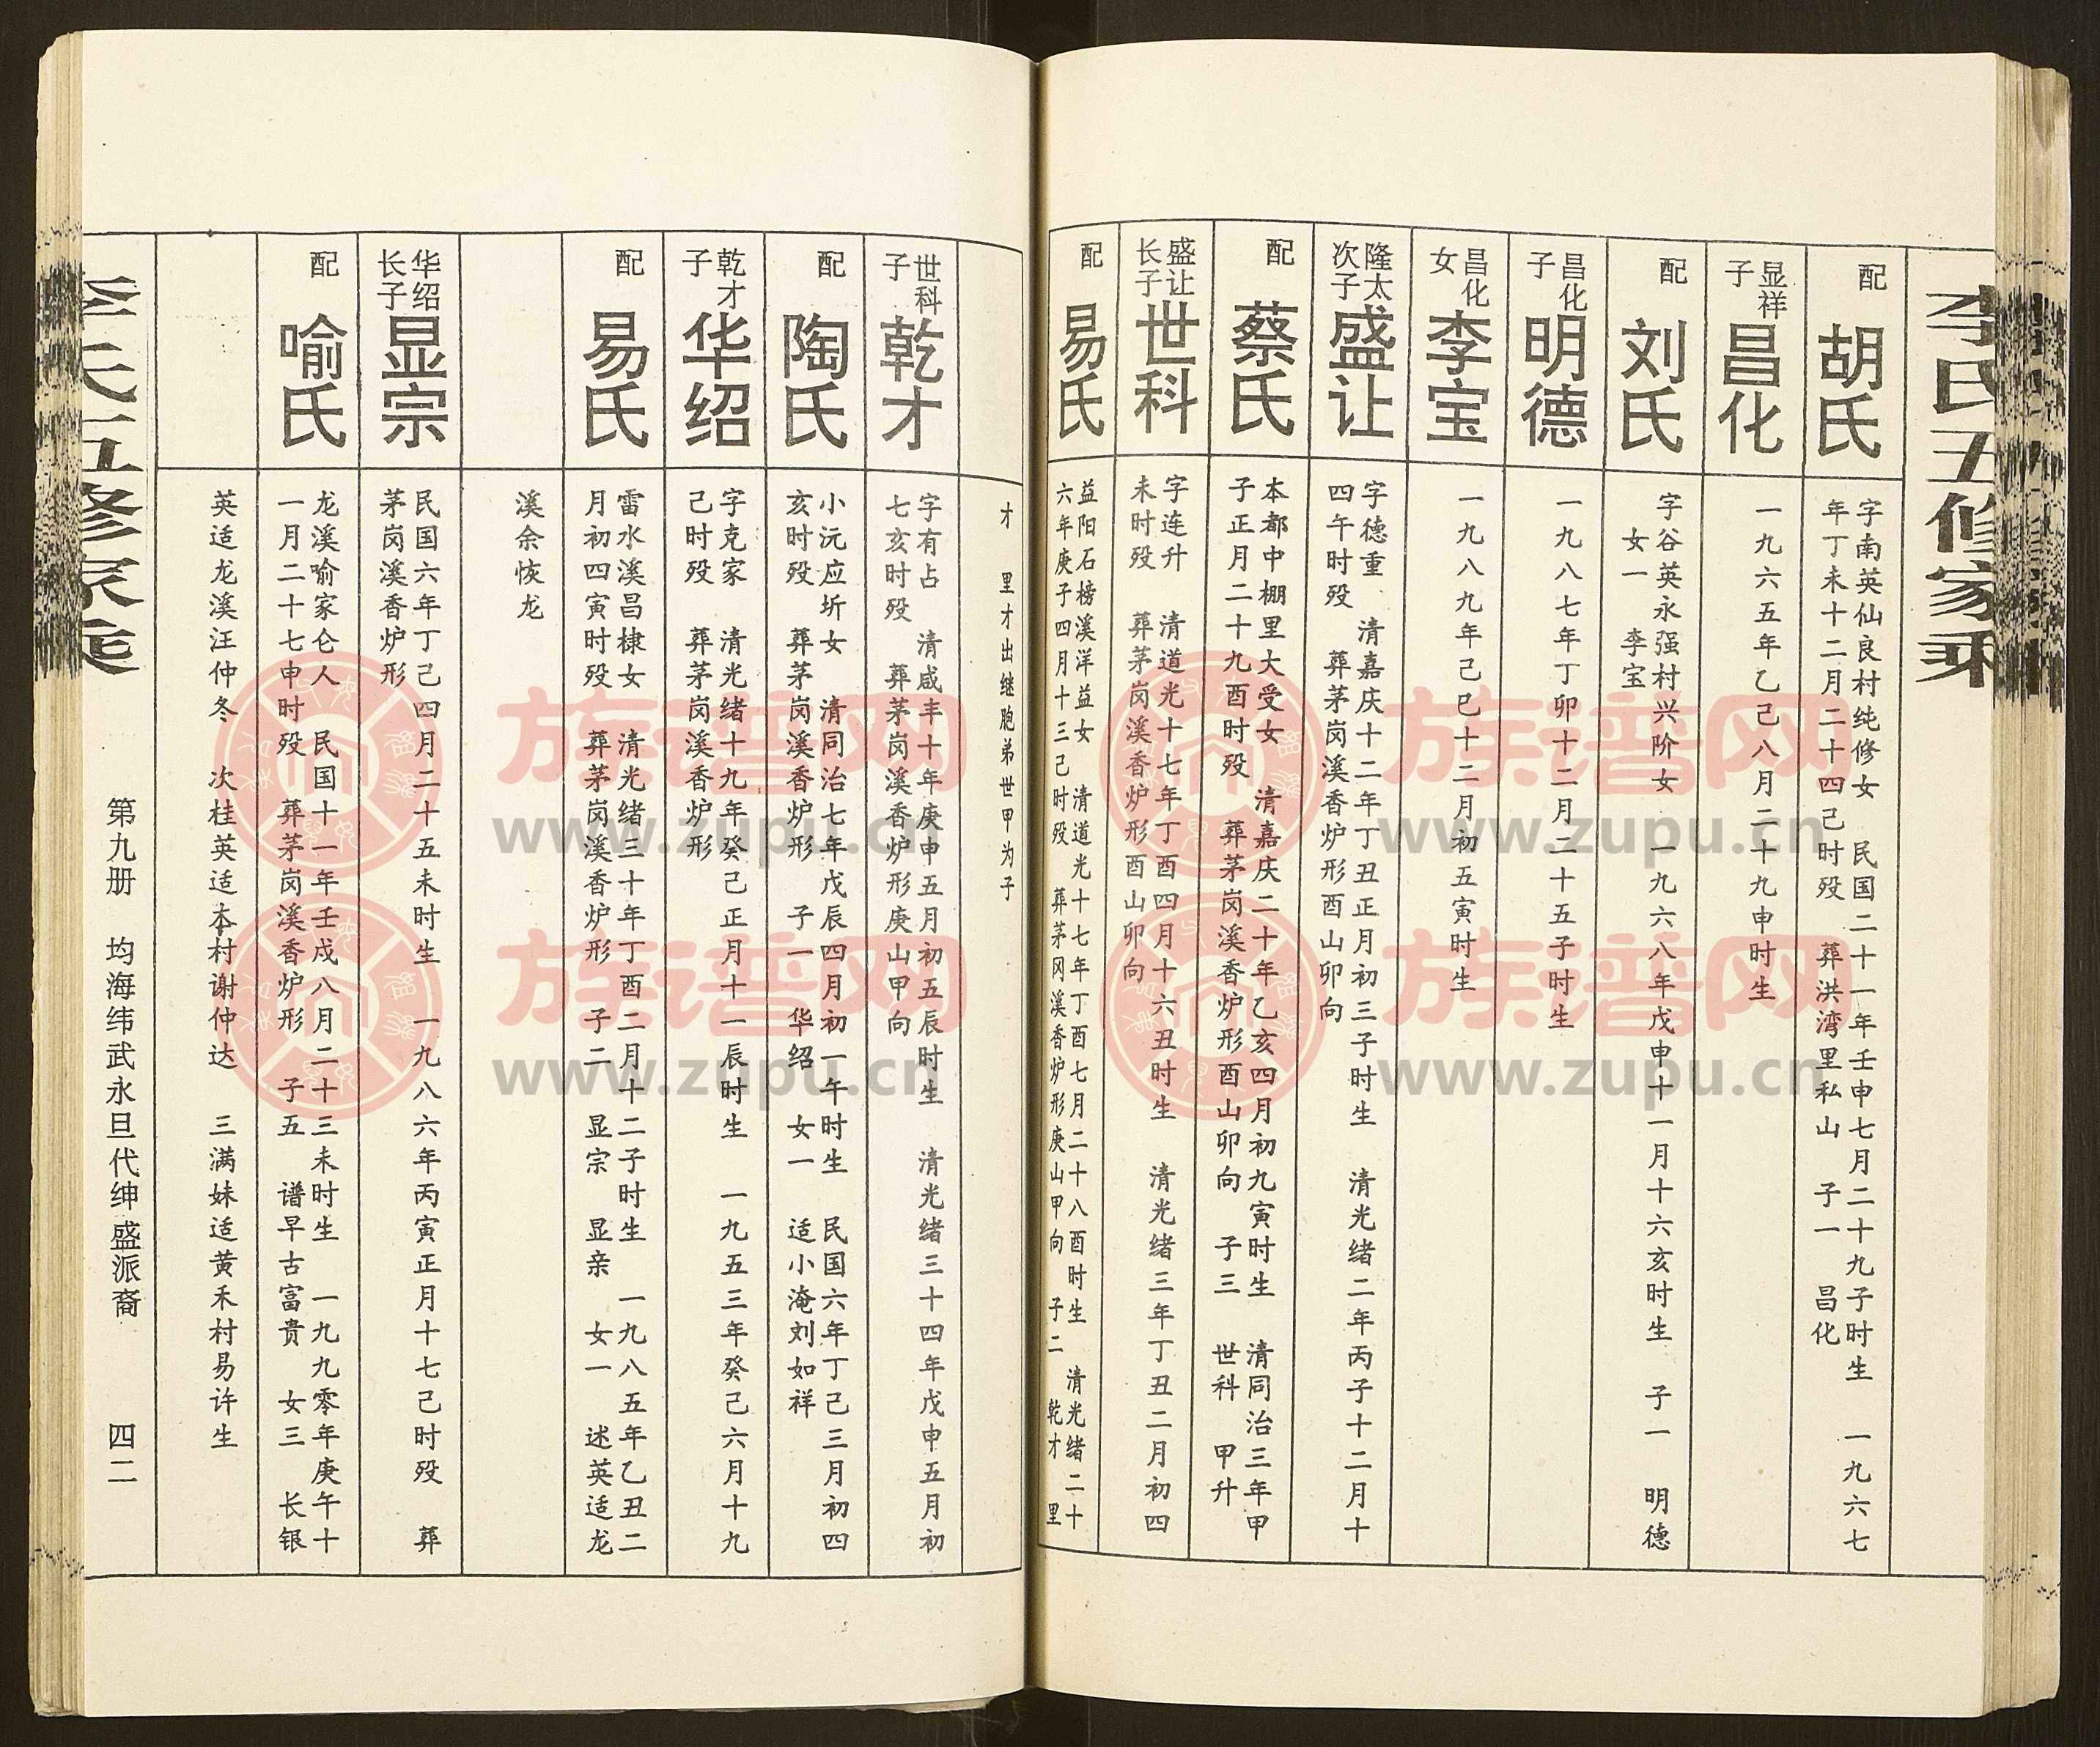 李氏五修家乘
配
胡氏
字南英仙良村纯修女　民国二十一年壬申七月二十九子时生　一九六七
年丁未十二月二十四己时殁　葬洪湾里私山　子一　昌化
显祥
子
昌化
一九六五年乙己八月二十九申时生
配
刘氏
字谷英永强村兴阶女　一九六八年戊申十一月十六亥时生　子一　明德
女一　李宝
昌化
子
明德
一九八七年丁卯十二月二十五子时生
昌化
女
李宝
一九八九年己巳十二月初五寅时生
隆太
次子
盛让
字德重　清嘉庆十二年丁丑正月初三子时生　清光绪二年丙子十二月十
四午时殁　葬茅岗溪香炉形酉山卯向
配
蔡氏
本都中棚里大受女　清嘉庆二十年乙亥四月初九寅时生　清同治三年甲
子正月二十九酉时殁　葬茅岗溪香炉形酉山卯向　子三　世科　甲升
盛让
长子
世科
字连升　清道光十七年丁酉四月十六丑时生　清光绪三年丁丑二月初四
未时殁　葬茅岗溪香炉形酉山卯向
配
易氏
益阳石榜溪洋益女　清道光十七年丁酉七月二十八酉时生　清光绪二十
六年庚子四月十三己时殁　葬茅冈溪香炉形庚山甲向　子二　乾才　里
才　里才出继胞弟世甲为子
世科
子
乾才
字有占　清咸丰十年庚申五月初五辰时生　清光绪三十四年戊申五月初
七亥时殁　葬茅岗溪香炉形庚山甲向
配
陶氏
小沅应圻女　清同治七年戊辰四月初一午时生　民国六年丁己三月初四
亥时殁　葬茅岗溪香炉形　子一　华绍　女一　适小淹刘如祥
乾才
子
华绍
字克家　清光绪十九年癸己正月十一辰时生　一九五三年癸己六月十九
己时殁　葬茅岗溪香炉形
配
易氏
雷水溪昌棣女　清光绪三十年丁酉二月十二子时生　一九八五年乙丑二
月初四寅时殁　葬茅岗溪香炉形　子二　显宗　显亲　女一　述英适龙
溪余恢龙
华绍
长子
显宗
民国六年丁己四月二十五未时生　一九八六年丙寅正月十七己时殁　葬
茅岗溪香炉形
配
喻氏
龙溪喻家仑人　民国十一年壬戌八月二十三未时生　一九九零年庚午十
一月二十七申时殁　葬茅岗溪香炉形　子五　谱早古富贵　女三　长银
英适龙溪汪仲冬　次桂英适本村谢仲达　三满妹适黄禾村易许生
李氏五修家乘
第九册　均海纬武永旦代绅盛派裔　四二
族谱网
www.zupu.cn
族谱网
www.zupu.cn
族谱网
www.zupu.cn
族谱网
www.zupu.cn